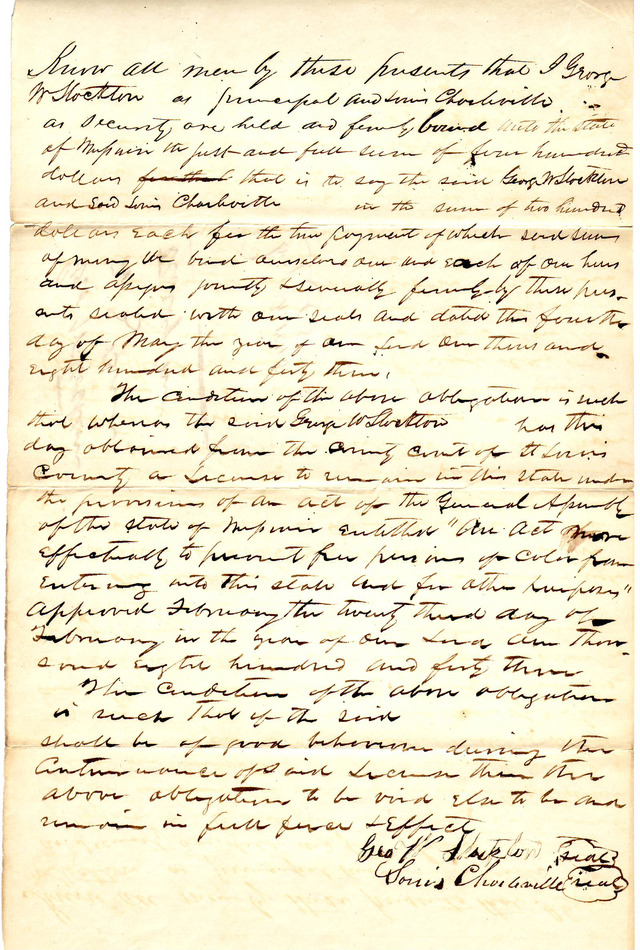 Know all men by these presents that I George
W Stockton as principal and Louis Charleville
as Security are held and firmly bound unto the state
of Missouri the just and full sum of four hundred
dollars that is to say the said George W Stockton
and Said Louis Charleville in the sum of two hundred
dollars Each for the true payment of which said sum
of money We bind ourselves our and Each of our heirs
and assigns jointly & severally firmly by these pres-
ents sealed with our seals and dated this fourth
day of May the year of our Lord One thousand
Eight hundred and forty three.
The Condition of the above obligation is such
that whereas the said George W Stockton has this
day obtained from the County Court of St Louis
County a License to remain in this state under
the provisions of an act of the General Assembly
of the state of Missouri Entitled "An Act more
Effectually to prevent free persons of Color from
Entering into this state and for other purposes"
Approved February the twenty third day of
February in the year of our Lord One thou-
sand Eight hundred and forty three
The Condition of the above obligation
is such that if the said
shall be of good behaviour during the
Continuance of said License then the
above obligation to be void Else to be and
remain in full force & Effect
Geo W Stockton seal
Louis Charleville seal